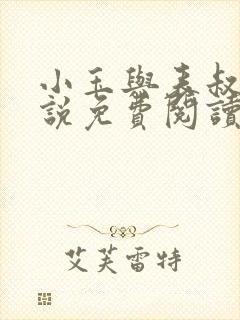 小玉與表叔
說免費閱讀
艾芙雷特